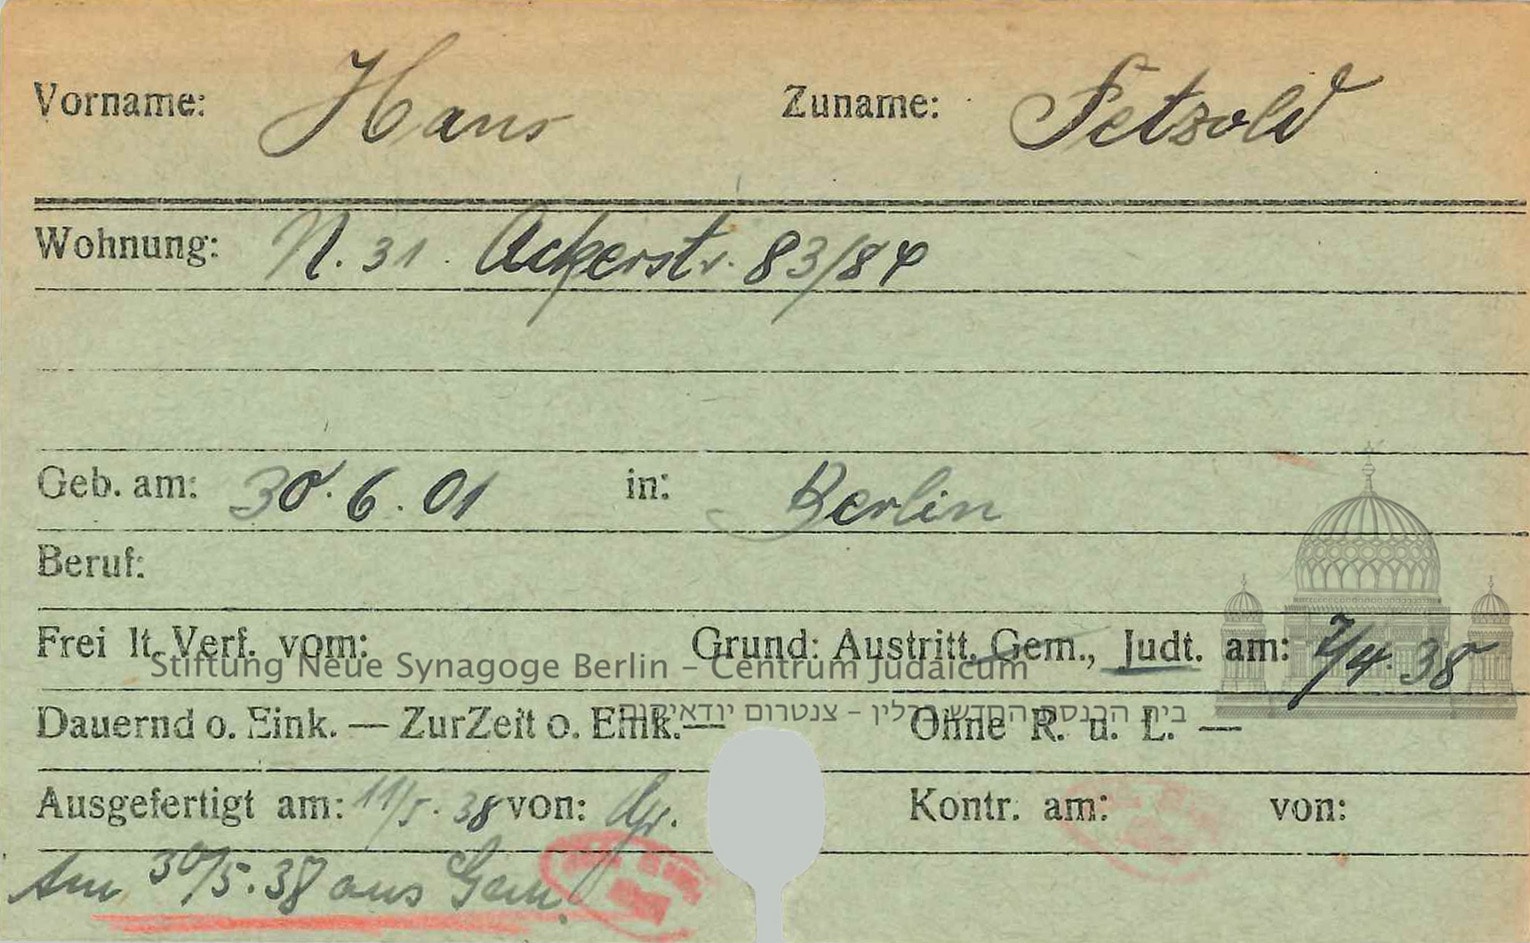 Vorname: Hans Zuname: Petzold
Wohnung: N. 31. Ackerstr. 83/84
Geb. am: 30. 6. 01 in: Berlin
Beruf:
Frei lt. Verf. vom: Grund: Austritt. Gem., Judt. am: 7/4. 38
Stiftung Neue Synagoge Berlin – Centrum Judaicum
Dauernd o. Eink. — Zur Zeit o. Eink. — Ohne R. u. L. —
בית הכנסת החדש ברלין – צנטרום יודאיקום
Ausgefertigt am: 11/5. 38 von: Kontr. am: von:
Am 30/5. 38 aus Gem.